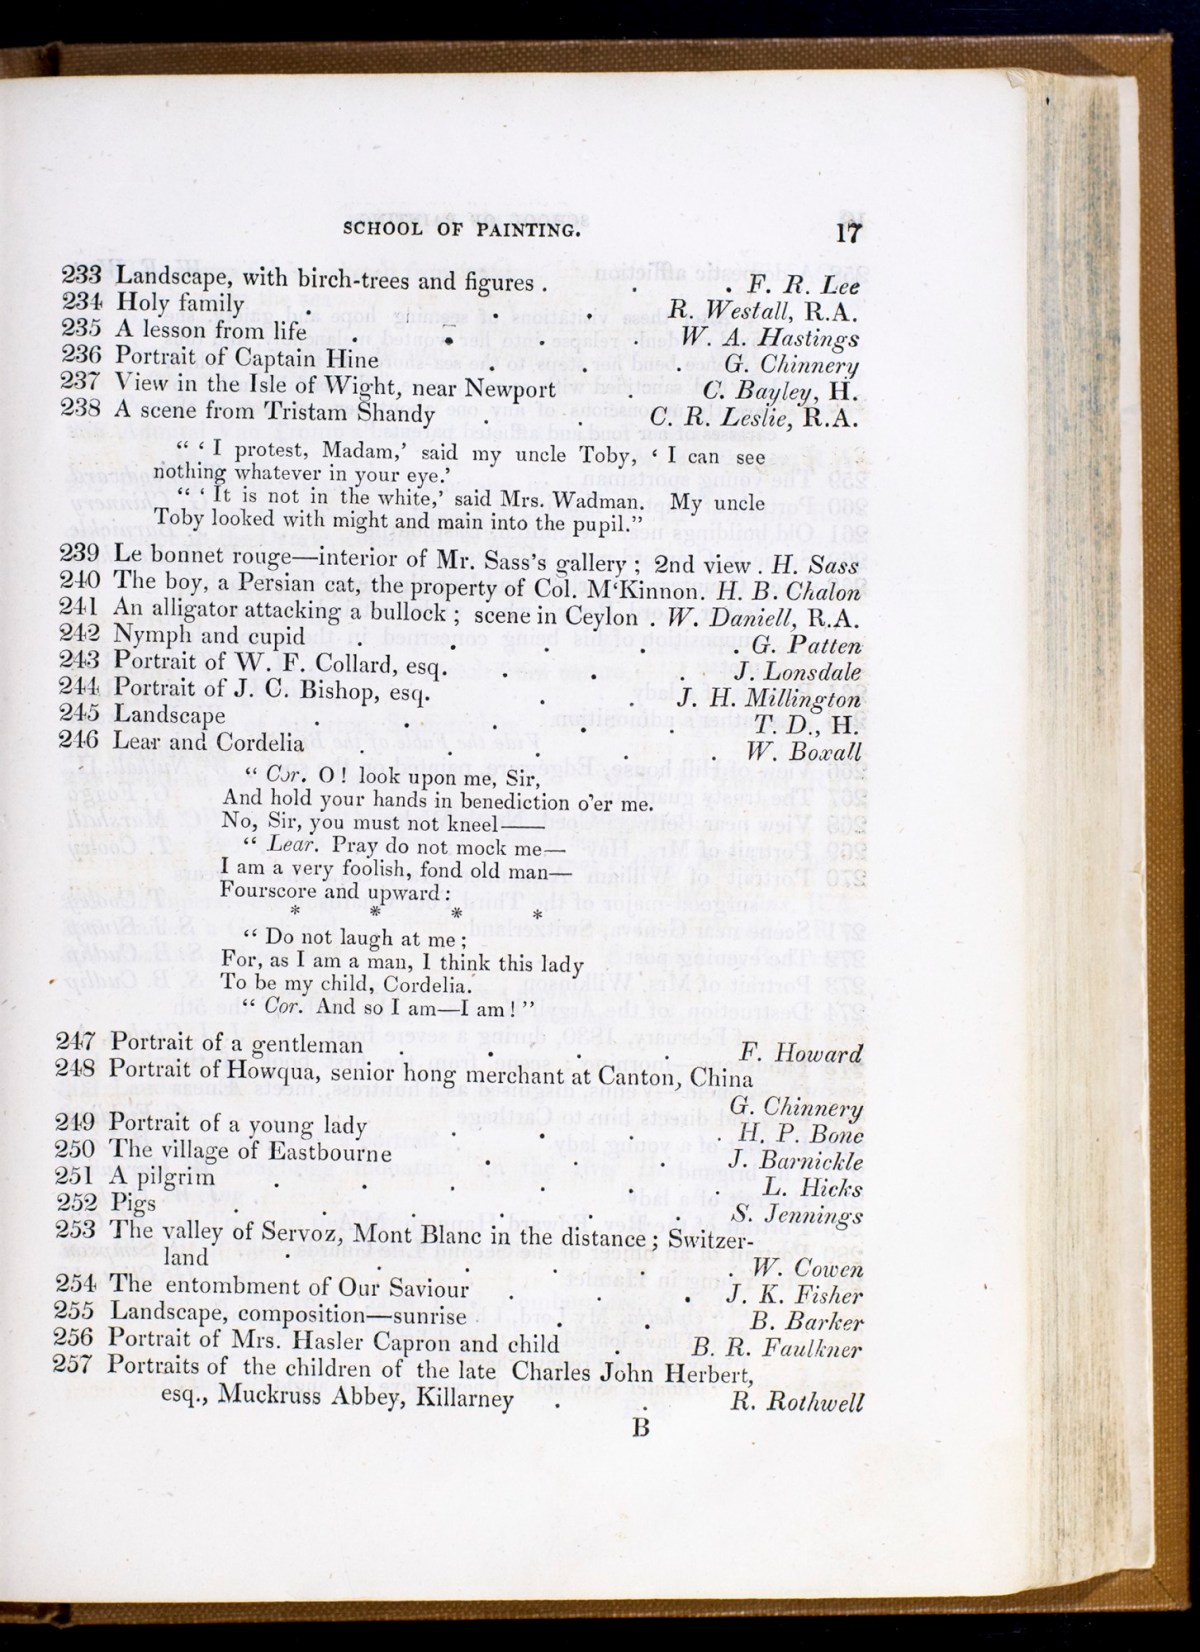 SCHOOL OF PAINTING. 17
233 Landscape, with birch-trees and figures . . . F. R. Lee
234 Holy family . . . . R. Westall, R.A.
235 A lesson from life . . . . W. A. Hastings
236 Portrait of Captain Hine . . . G. Chinnery
237 View in the Isle of Wight, near Newport . C. Bayley, H.
238 A scene from Tristam Shandy . . C. R. Leslie, R.A.
“ ‘ I protest, Madam,’ said my uncle Toby, ‘ I can see
nothing whatever in your eye.’
“ ‘ It is not in the white,’ said Mrs. Wadman. My uncle
Toby looked with might and main into the pupil.”
239 Le bonnet rouge—interior of Mr. Sass’s gallery ; 2nd view . H. Sass
240 The boy, a Persian cat, the property of Col. M‘Kinnon. H. B. Chalon
241 An alligator attacking a bullock ; scene in Ceylon . W. Daniell, R.A.
242 Nymph and cupid . . . . . G. Patten
243 Portrait of W. F. Collard, esq. . . . J. Lonsdale
244 Portrait of J. C. Bishop, esq. . . J. H. Millington
245 Landscape . . . . . T. D., H.
246 Lear and Cordelia . . . . . W. Boxall
“ Cor. O ! look upon me, Sir,
And hold your hands in benediction o’er me.
No, Sir, you must not kneel——
“ Lear. Pray do not mock me—
I am a very foolish, fond old man—
Fourscore and upward :
* * * *
“ Do not laugh at me ;
For, as I am a man, I think this lady
To be my child, Cordelia.
“ Cor. And so I am—I am ! ”
247 Portrait of a gentleman . . . . F. Howard
248 Portrait of Howqua, senior hong merchant at Canton, China
G. Chinnery
249 Portrait of a young lady . . . . H. P. Bone
250 The village of Eastbourne . . . J. Barnickle
251 A pilgrim . . . . . . L. Hicks
252 Pigs . . . . . . S. Jennings
253 The valley of Servoz, Mont Blanc in the distance ; Switzer-
land . . . . . . W. Cowen
254 The entombment of Our Saviour . . . J. K. Fisher
255 Landscape, composition—sunrise . . B. Barker
256 Portrait of Mrs. Hasler Capron and child . B. R. Faulkner
257 Portraits of the children of the late Charles John Herbert,
esq., Muckruss Abbey, Killarney . . R. Rothwell
B